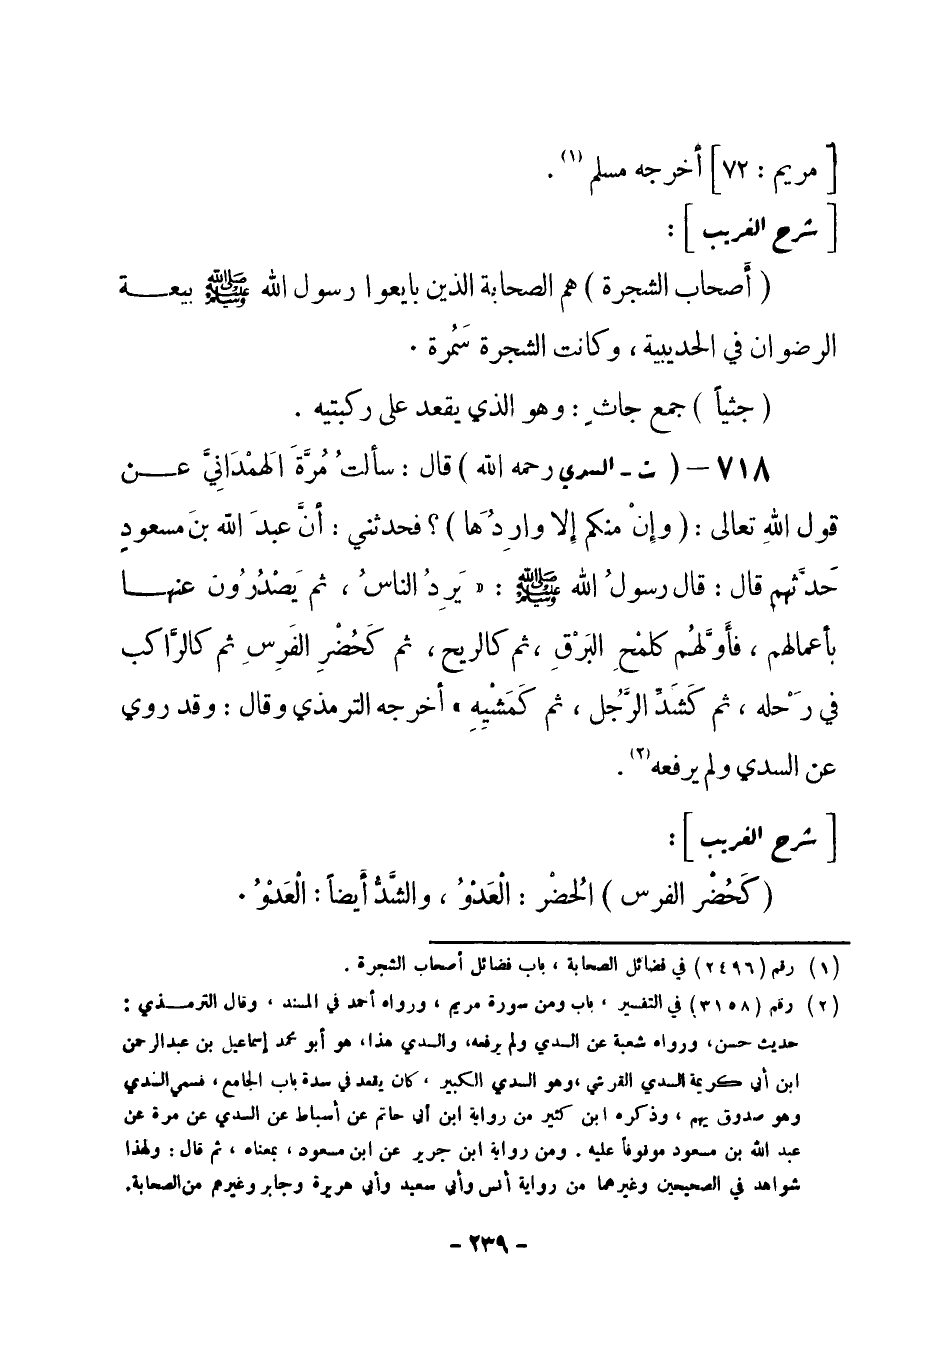 [ مريم : ٧٢] أخرجه مسلم (١) .
[ شرح الغريب ] :
( أَصحاب الشجرة ) هم الصحابة الذين بايعوا رسول الله ﷺ بيعـــة
الرضوان في الحديبية ، وكانت الشجرة سَمُرة .
( جثياً ) جمع جاثٍ : وهو الذي يقعد على ركبتيه .
٧١٨ – ( ت ـ السدي رحمه الله ) قال : سألتُ مُرَّةَ الهَمْدَانيَّ عـــن
قول اللهِ تعالى : ( وإنْ منكم إلا وارِدُهَا ) ؟ فحدثني : أنَّ عبدَ الله بنَ مسعودٍ
حَدَّثهم قال : قال رسولُ الله ﷺ : « يَرِدُ الناسُ ، ثم يَصْدُرُون عنهـــا
بأعمالهم ، فأَوَّلهُم كلمْحِ البَرْقِ ، ثم كالريح ، ثم كَحُضْرِ الفَرسِ ثم كالرَّاكب
في رَحْله ، ثم كَشَدِّ الرَّجُل ، ثم كَمَشْيِهِ » أخرجه الترمذي وقال : وقد روي
عن السدي ولم يرفعه (٢) .
[ شرح الغريب ] :
(كَحُضْر الفرس ) الحُضْر : الْعَدْوُ ، والشَّدُّ أَيضاً : الْعَدْوُ .
(١) رقم (٢٤٩٦) في فضائل الصحابة ، باب فضائل أصحاب الشجرة .
(٢) رقم (٣١٥٨) في التفسير ، باب ومن سورة مريم ، ورواه أحمد في المسند ، وقال الترمـــذي :
حديث حسن، ورواه شعبة عن السدي ولم يرفعه، والسدي هذا، هو أبو محمد إسماعيل بن عبدالرحمن
ابن أبي كريمة السدي القرشي ،وهو السدي الكبير ، كان يقعد في سدة باب الجامع ، فسمي السدي
وهو صدوق يهم ، وذكره ابن كثير من رواية ابن أبي حاتم عن أسباط عن السدي عن مرة عن
عبد الله بن مسعود موقوفاً عليه . ومن رواية ابن جرير عن ابن مسعود ، بمعناه ، ثم قال : ولهذا
شواهد في الصحيحين وغيرهما من رواية أنس وأبي سعيد وأبي هريرة وجابر وغيرهم من الصحابة.
- ٢٣٩ -